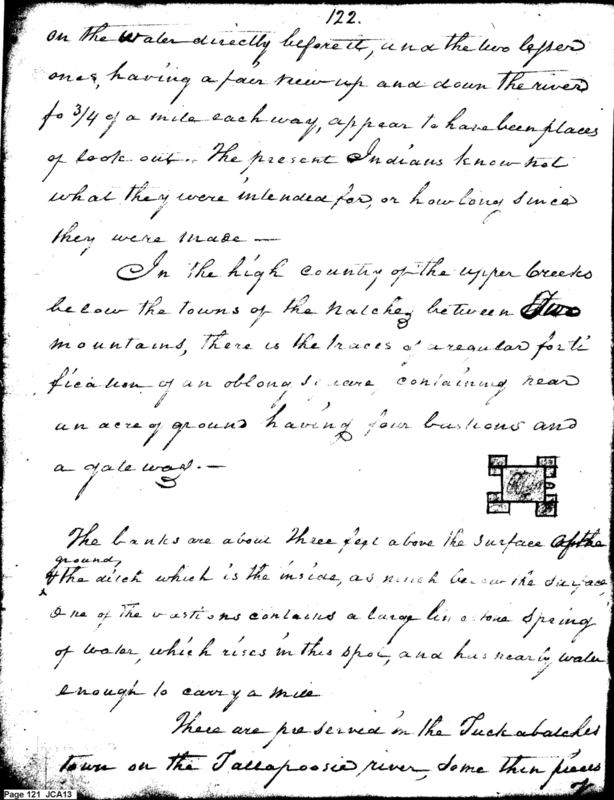 122.
on the water directly before it, and the two lesser
ones, having a fair view up and down the river
fo 3/4 of a mile each way, appear to have been places
of look out. The present Indians know not
what they were intended for, or how long since
they were made —
In the high country of the upper Creeks
below the towns of the Natchez between two
mountains, there is the traces of a regular forti
fication of an oblong square, containing near
an acre of ground having four bastions and
a gate way. —
The banks are about three feet above the surface of the
ground,
& the ditch which is the inside, as much below the surface,
One of the bastions contains a large lime stone spring
of water, which rises in this spot, and has nearly water
enough to carry a mile
There are preserved in the Tuckabatches
town on the Tallapoosie river, some thin pieces
of
Page 121 JCA13